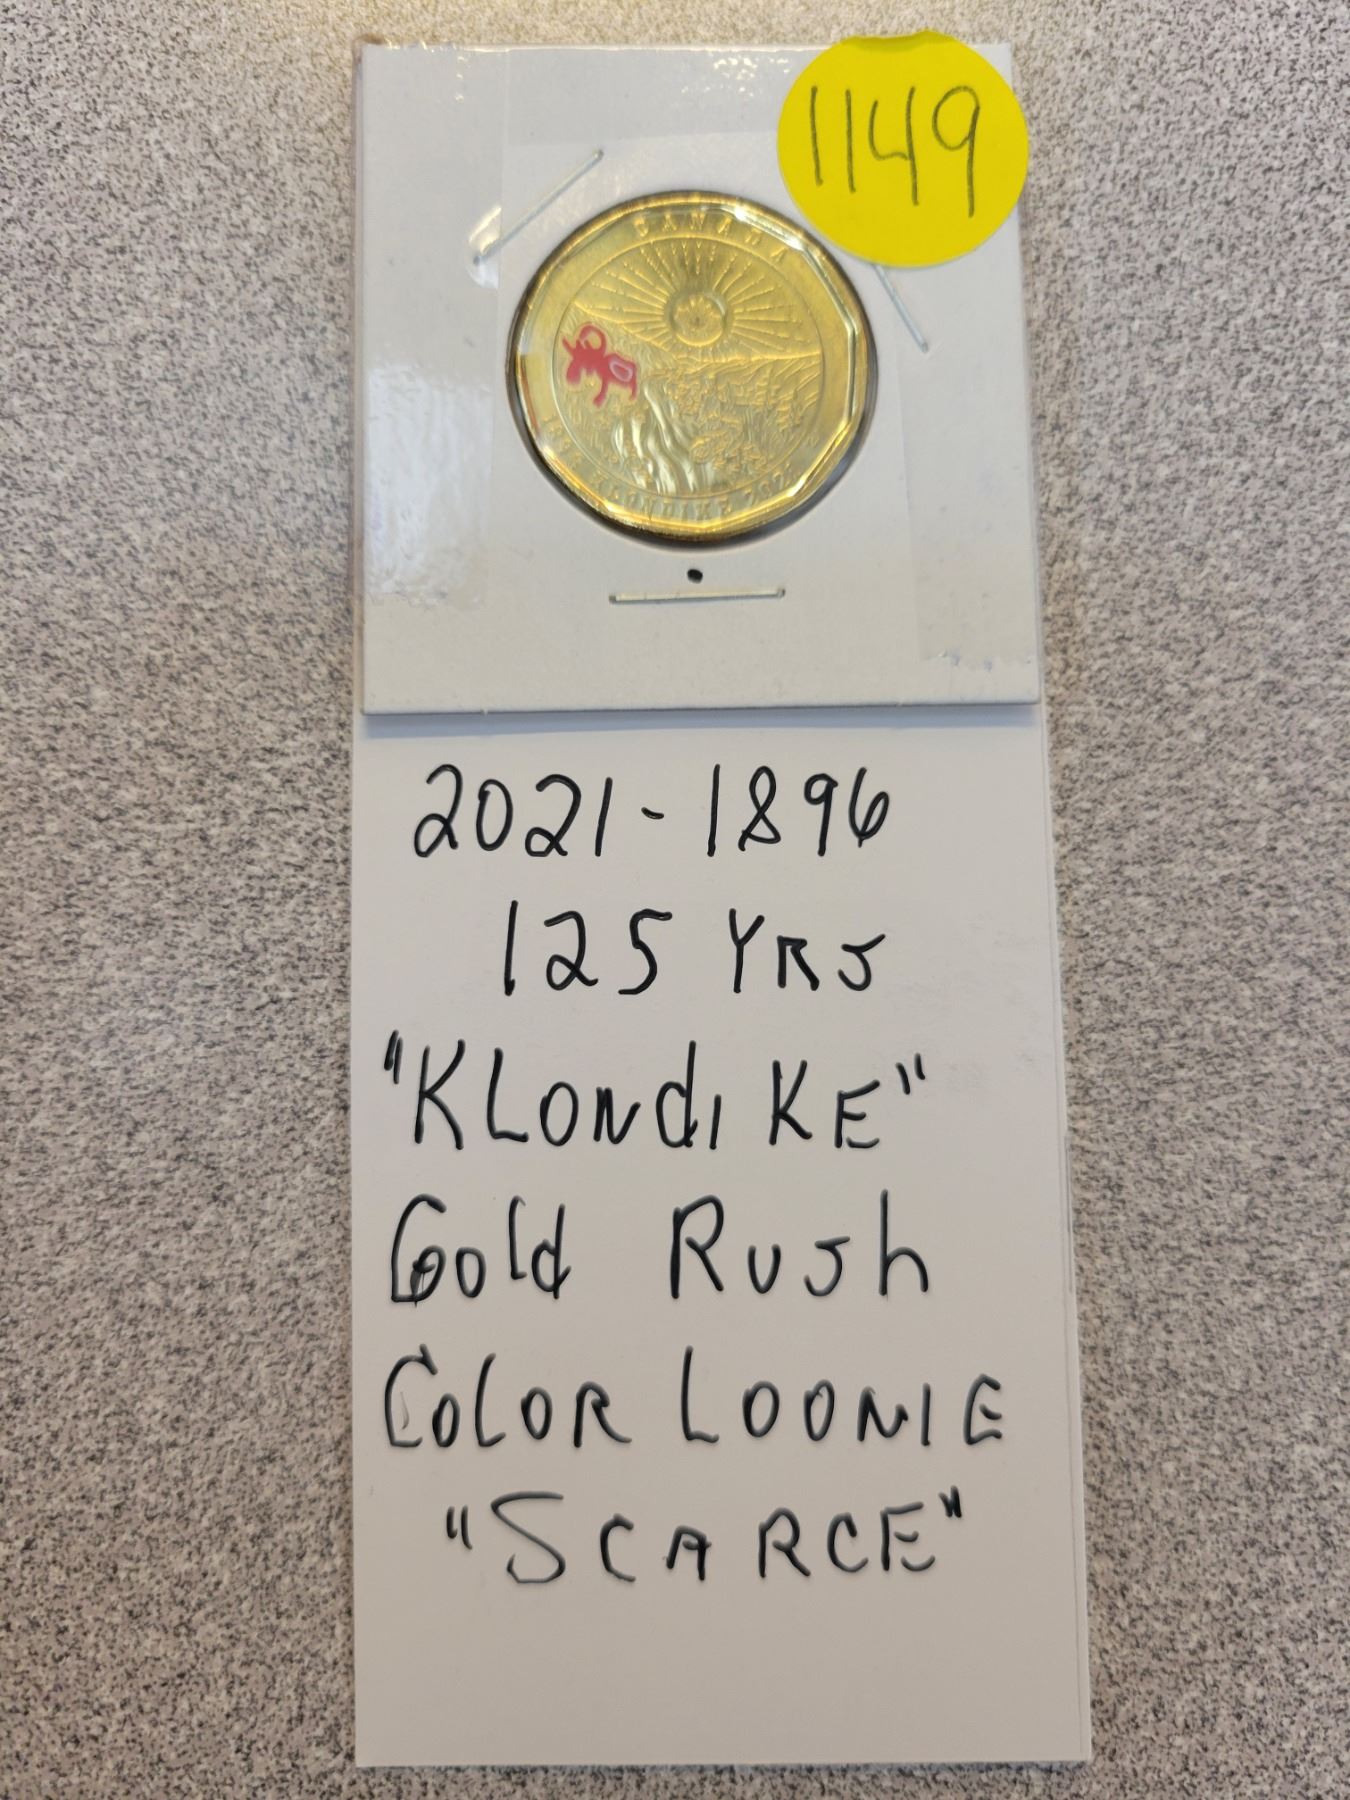 1149
CANADA
1896 KLONDIKE 2021
2021-1896
125 YRS
"KLONdIKE"
Gold Rush
COLOR LOONIE
"SCARCE"